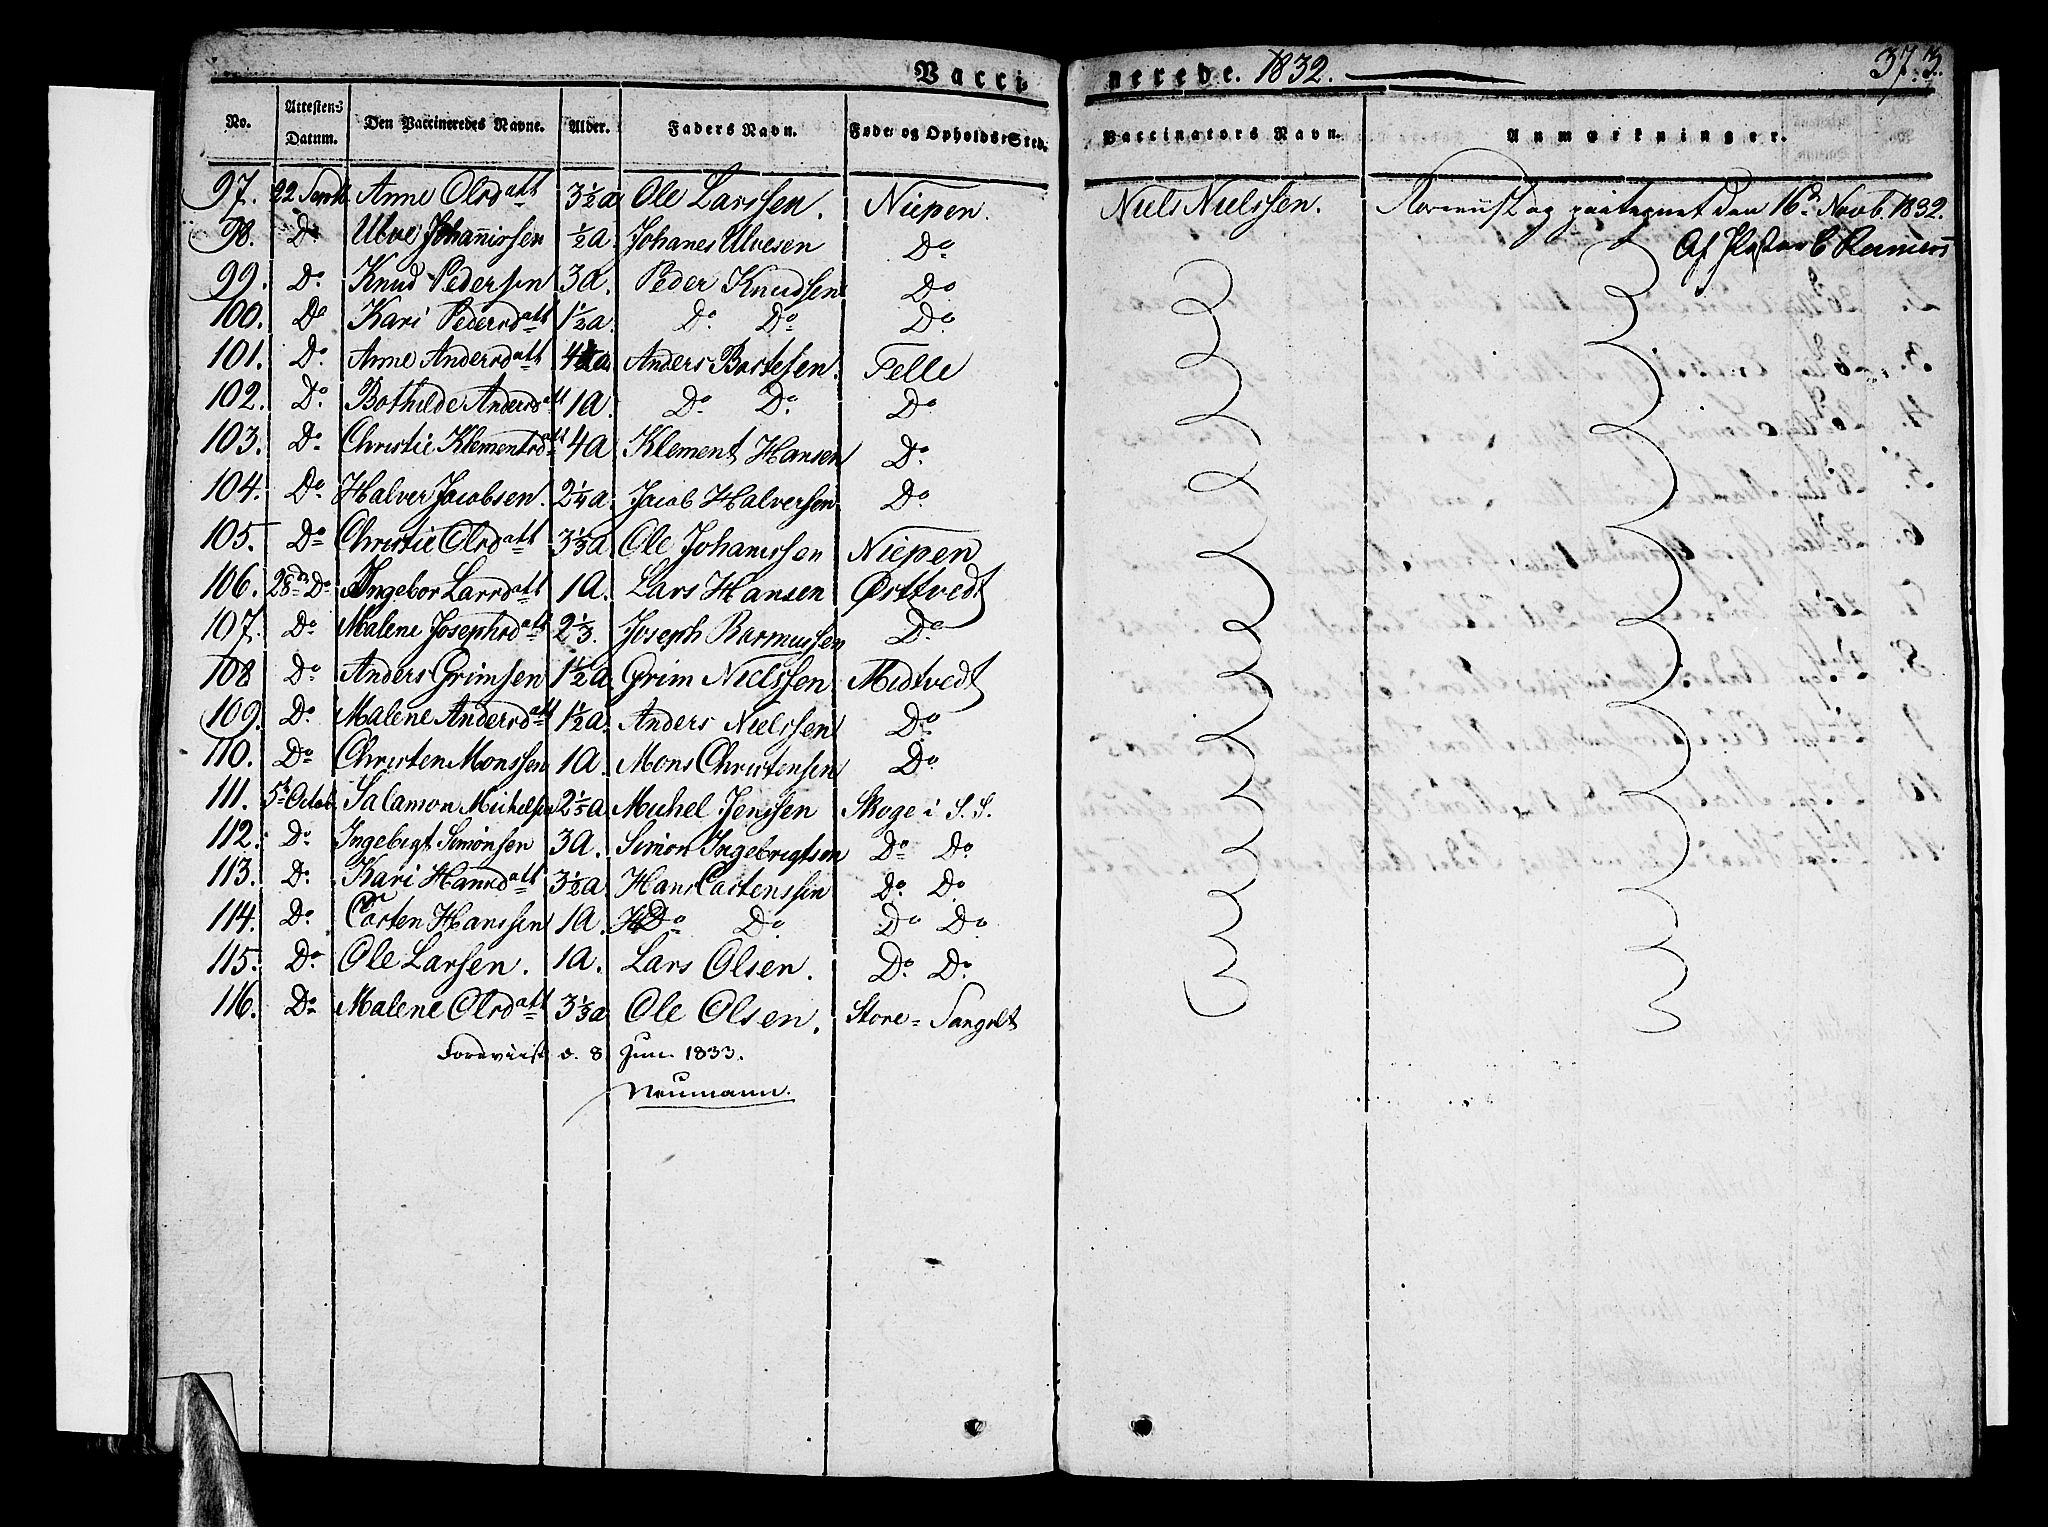 Vaccinerede. 1832. 373.
No. Attestens Datum. Den Vaccineredes Navne. Alder. Faders Navn. Føde og Opholds-Sted. Vaccinators Navn. Anmærkninger.
97. 22 Septb. Anne Olsdatt 3½a Ole Larssen. Niepen. Niels Nielssen. Foreviist og paategnet den 16d Novb. 1832.
98. Do Ulve Johannissen ½a. Johanes Ulvesen Do Af C
99. Do Knud Pedersen 3a. Peder Knudsen Do
100. Do Kari Pedersdatt 1½a Do Do Do
101. Do Anne Andersdatt 4a Anders Bortesen. Telle
102. Do Bothilde Andersdatt 1a Do Do Do
103. Do Christie Klementsdatt 4a Klement Hansen Do
104. Do Halver Jacobsen. 2¼a. Jacob Halversen Do
105. Do Christie Olsdatt 3⅓a Ole Johanessen Niepen
106. 28de Do Ingebor Larsdatt 1a. Lars Hansen Østtvedt
107. Do Malene Josephsdatt 2⅓. Joseph Rasmussen Do
108 Do Anders Grimsen 1½a Grim Nielssen Midtvedt
109. Do Malene Andersdatt 1½a. Anders Nielssen Do
110. Do Christen Monssen 1a Mons Christensen Do
111. 5t Octob. Salamon Michelsen 2⅓a Michel Jenssen Skoge i S.S.
112. Do Ingebrigt Simonsen 3a. Simon Ingebrigtsen Do Do
113. Do Kari Hansdatt 3½a Hans Castenssen Do Do
114. Do Casten Hanssen 1a. Do Do Do Do
115. Do Ole Larsen. 1a. Lars Olsen. Do Do
116. Do Malene Olsdatt 3⅓a Ole Olsen. Store=Sangolt
Foreviist d. 8 Jun. 1833.
Neumann.